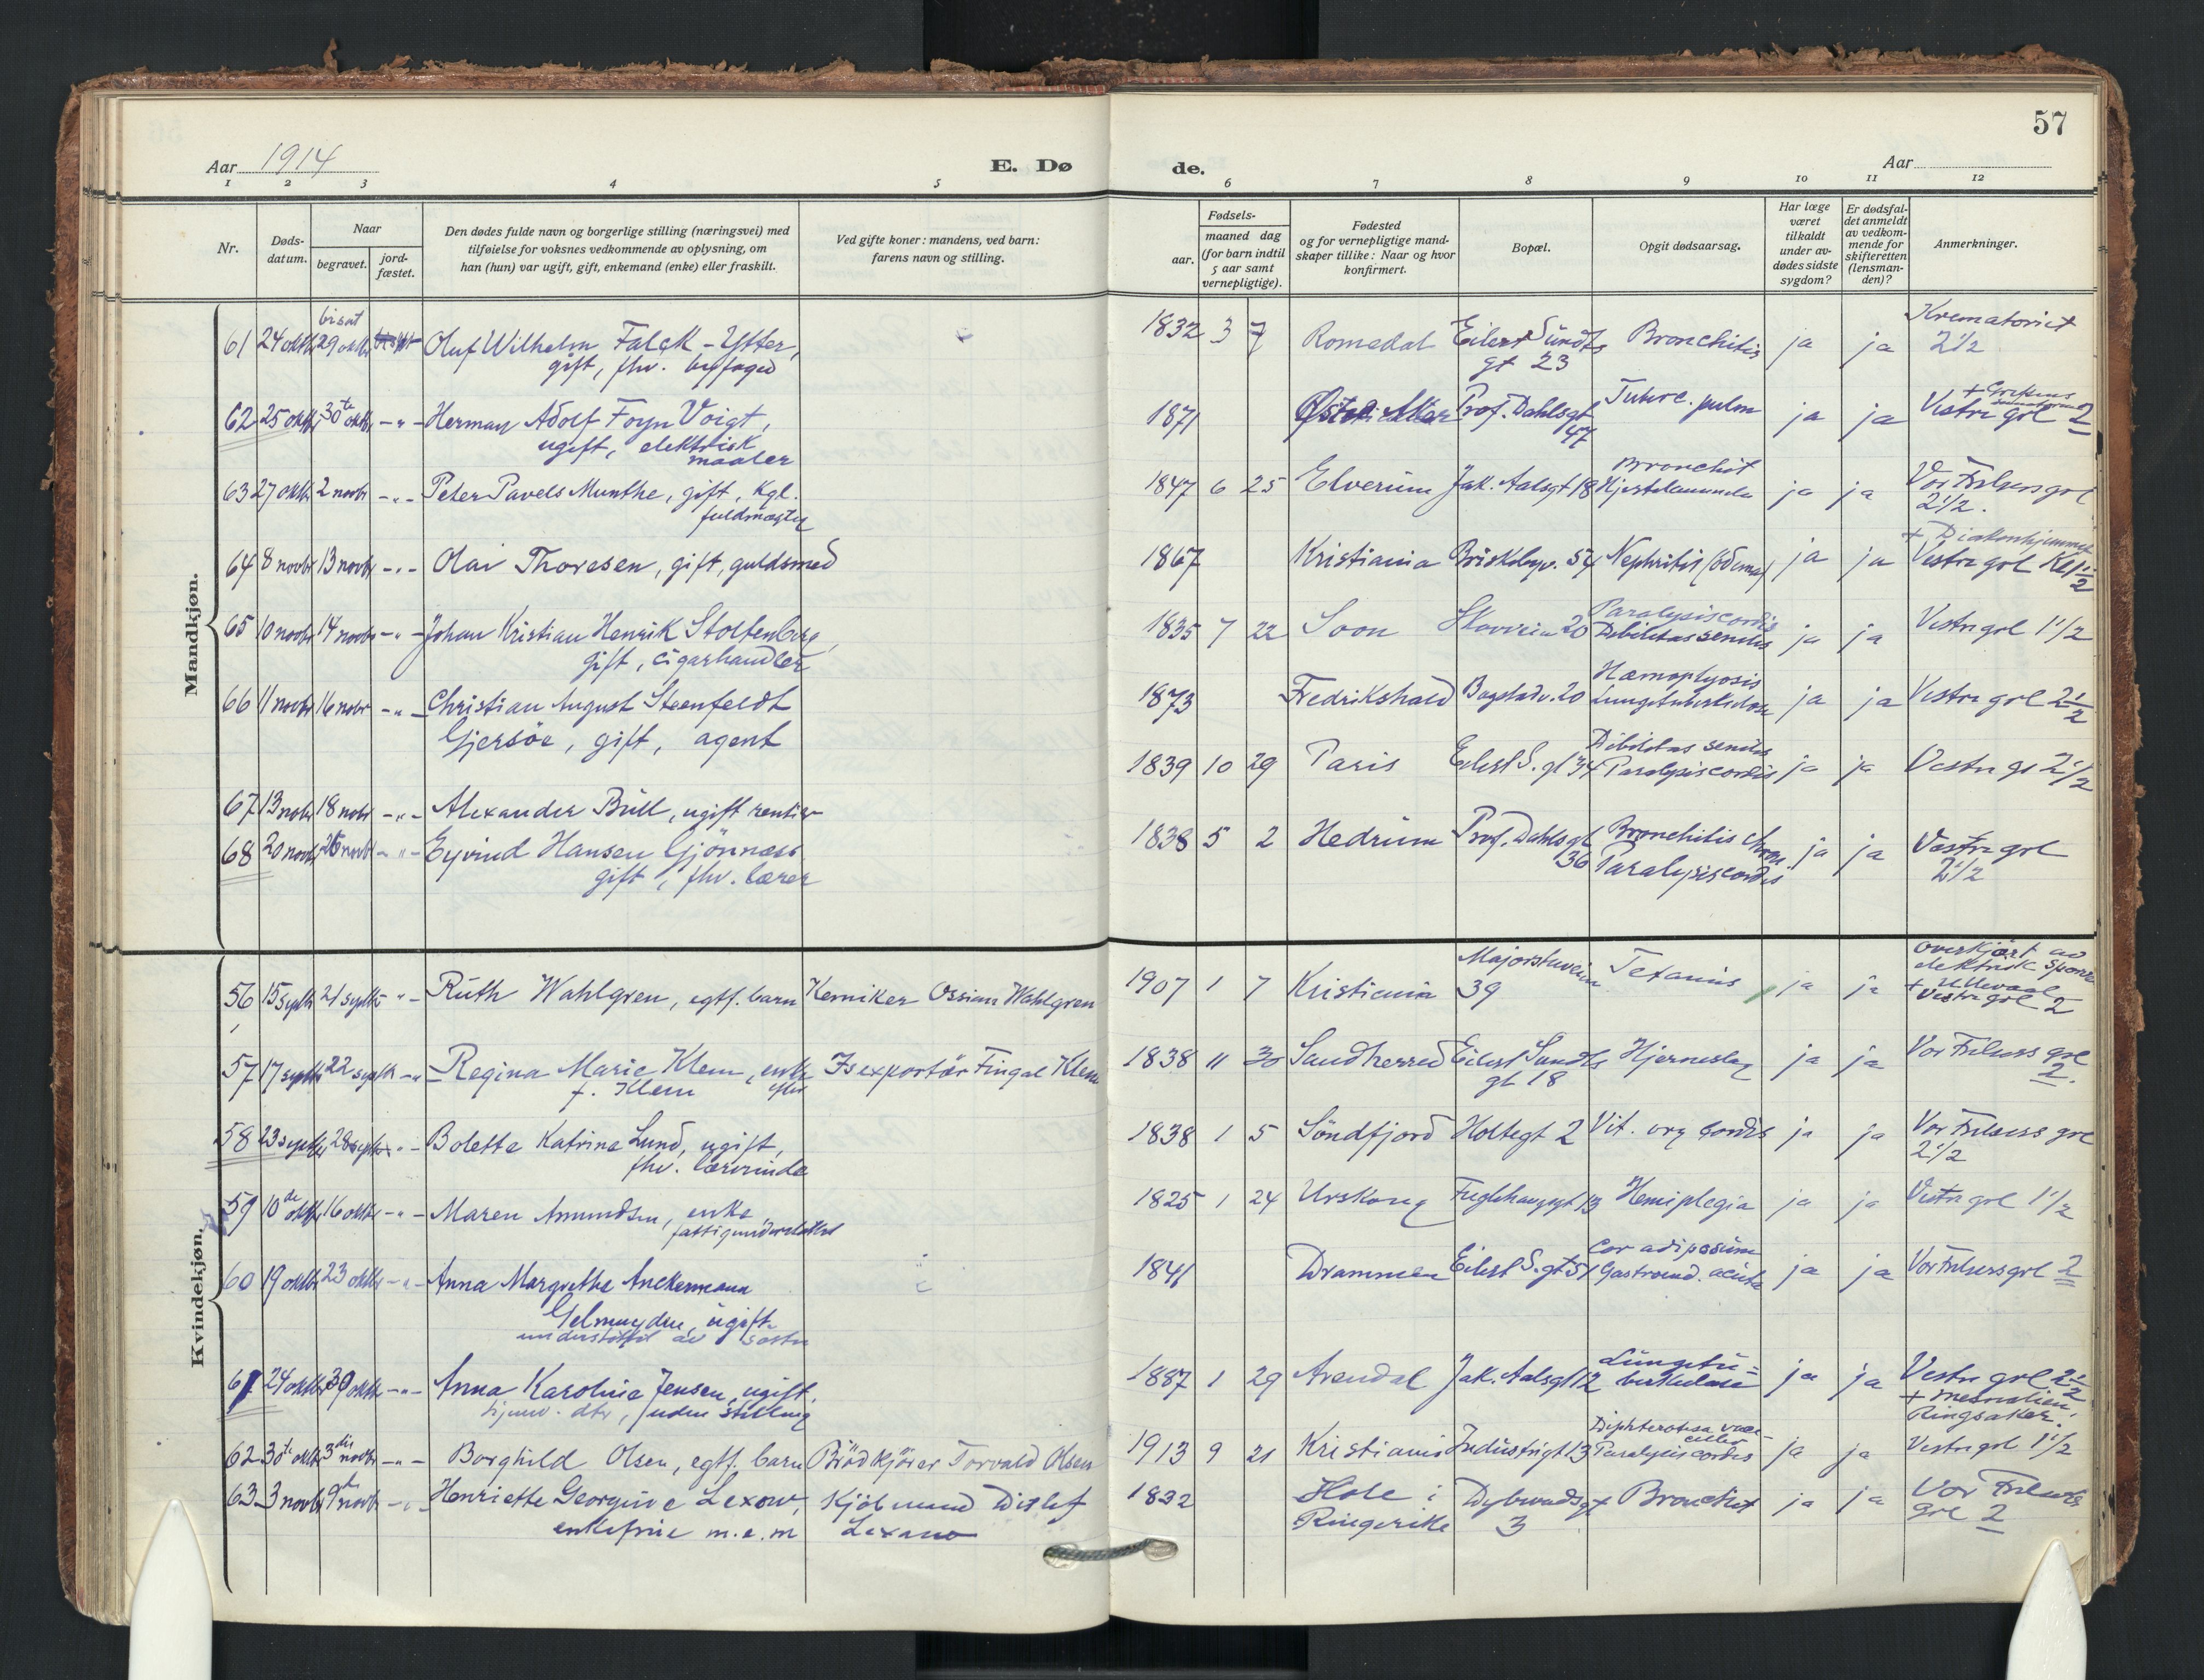 57
Aar 1914
E. Dø
de.
Aar
1 2 3 4 5 6 7 8 9 10 11 12
Nr.
Døds-
datum.
Naar
begravet.
jord-
fæstet.
Den dødes fulde navn og borgerlige stilling (næringsvei) med
tilføielse for voksnes vedkommende av oplysning, om
han (hun) var ugift, gift, enkemand (enke) eller fraskilt.
Ved gifte koner: mandens, ved barn:
farens navn og stilling.
Fødsels-
aar.
maaned dag
(for barn indtil
5 aar samt
vernepligtige).
Fødested
og for vernepligtige mand-
skaper tillike: Naar og hvor
konfirmert.
Bopæl.
Opgit dødsaarsag.
Har læge
været
tilkaldt
under av-
dødes sidste
sygdom?
Er dødsfal-
det anmeldt
av vedkom-
mende for
skifteretten
(lensman-
den)?
Anmerkninger.
Mandkjøn.
bisat
61 24 oktbr 29 oktbr Oluf Wilhelm Falck-Ytter,
gift, fhv. byfoged
1832 3 7 Romedal Eilert Sundts
gt 23
Bronchitis ja ja Krematoriet
2 1/2
62 25 oktbr 30te oktbr -"- Herman Adolf Foyn Voigt,
ugift, elektrisk
maaler
1871 Østre Aker Prof. Dahlsgt
47
Tuberc. pulm ja ja + Grefsens
Vestre grl 2
63 27 oktbr 2 novbr -"- Peter Pavels Munthe, gift, kgl.
fuldmægtig
1847 6 25 Elverum Jak. Aalsgt 18 Bronchit
ja ja Vor Frelsers grl
2 1/2.
64 8 novbr 13 novbr -"- Olai Thoresen, gift, guldsmed
1867 Kristiania Briskebyv. 54 Nephritis (ödema) ja ja + Diakonhjemmet
Vestre grl Kl 1 1/2
65 10 novbr 14 novbr -"- Johan Kristian Henrik Stoltenberg,
gift, cigarhandler
1835 7 22 Soon Skovveien 20 Paralysis cordis
Debilitas senilis ja ja Vestre grl 1 1/2
66 11 novbr 16 novbr -"- Christian August Steenfeldt
Gjersöe, gift, agent
1873 Fredrikshald Bogstadv. 20 Hæmoptysis
Lungetuberkulose ja ja Vestre grl 2 1/2
67 13 nobr 18 nobr -"- Alexander Bull, ugift rentier
1839 10 29 Paris Eilert S. gt 34 Debilitas senilis
Paralysis cordis ja ja Vestre gr 2 1/2
68 20 novbr 26 novbr -"- Eyvind Hansen Gjönnæss
gift, fhv. lærer
1838 5 2 Hedrum Prof. Dahlsgt
36
Bronchitis chron.
Paralysis cordis ja ja Vestre grl
2 1/2
Kvindekjøn.
56 15 septbr 21 septbr -"- Ruth Wahlgren, egtf. barn Kemiker Ossian Wahlgren
1907 1 7 Kristiania Majorstuveien
39
Tetanus ja ja Overkjørt av
elektrisk sporv
+ Ullevaal
Vestre grl 2
57 17 septbr 22 septbr -"- Regina Marie Klem, enke
f. Klem efter
Isexportör Fingal Klem
1838 11 30 Sandherred Eilert Sundts
gt 18
Hjerneslag ja ja Vor Frelsers grl
2.
58 23 septbr 28 septbr -"- Bolette Katrine Lund, ugift,
fhv. lærerinde
1838 1 5 Söndfjord Holtegt 2 Vit. org cordis ja ja Vor Frelsers grl
2 1/2
59 10de oktbr 16 oktbr -"- Maren Amundsen, enke
fattigunderstøttet
1825 1 24 Urskoug Fuglehauggt 13 Hemiplegia ja ja Vestre grl 1 1/2
60 19 oktbr 23 oktbr -"- Anna Margrethe Anckermann
Gelmuyden, ugift
understöttet av søster
1841 Drammen Eilert S. gt 51 Cor adiposum
acuta ja ja Vor Frelsers grl 2
61 24 oktbr 30 oktbr -"- Anna Karoline Jensen, ugift,
hjemv. dtr, uden stilling
1887 1 29 Arendal Jak. Aalsgt 12 Lungetu-
berkulose ja ja Vestre grl 2 1/2
+ Mesnalien,
Ringsaker.
62 30te oktbr 3die novbr -"- Borghild Olsen, egtf. barn Brödkjörer Torvald Olsen
1913 9 21 Kristiania Industrigt 13
Paralysis cordis ja ja Vestre grl 1 1/2
63 3 novbr 9de novbr -"- Henriette Georgine Lexow,
enkefrue m.e.m
Kjöbmand Ditlef
Lexow
1832 Hole i
Ringerike
Dybwadsgt
3
Bronchit ja ja Vor Frelsers
grl 2